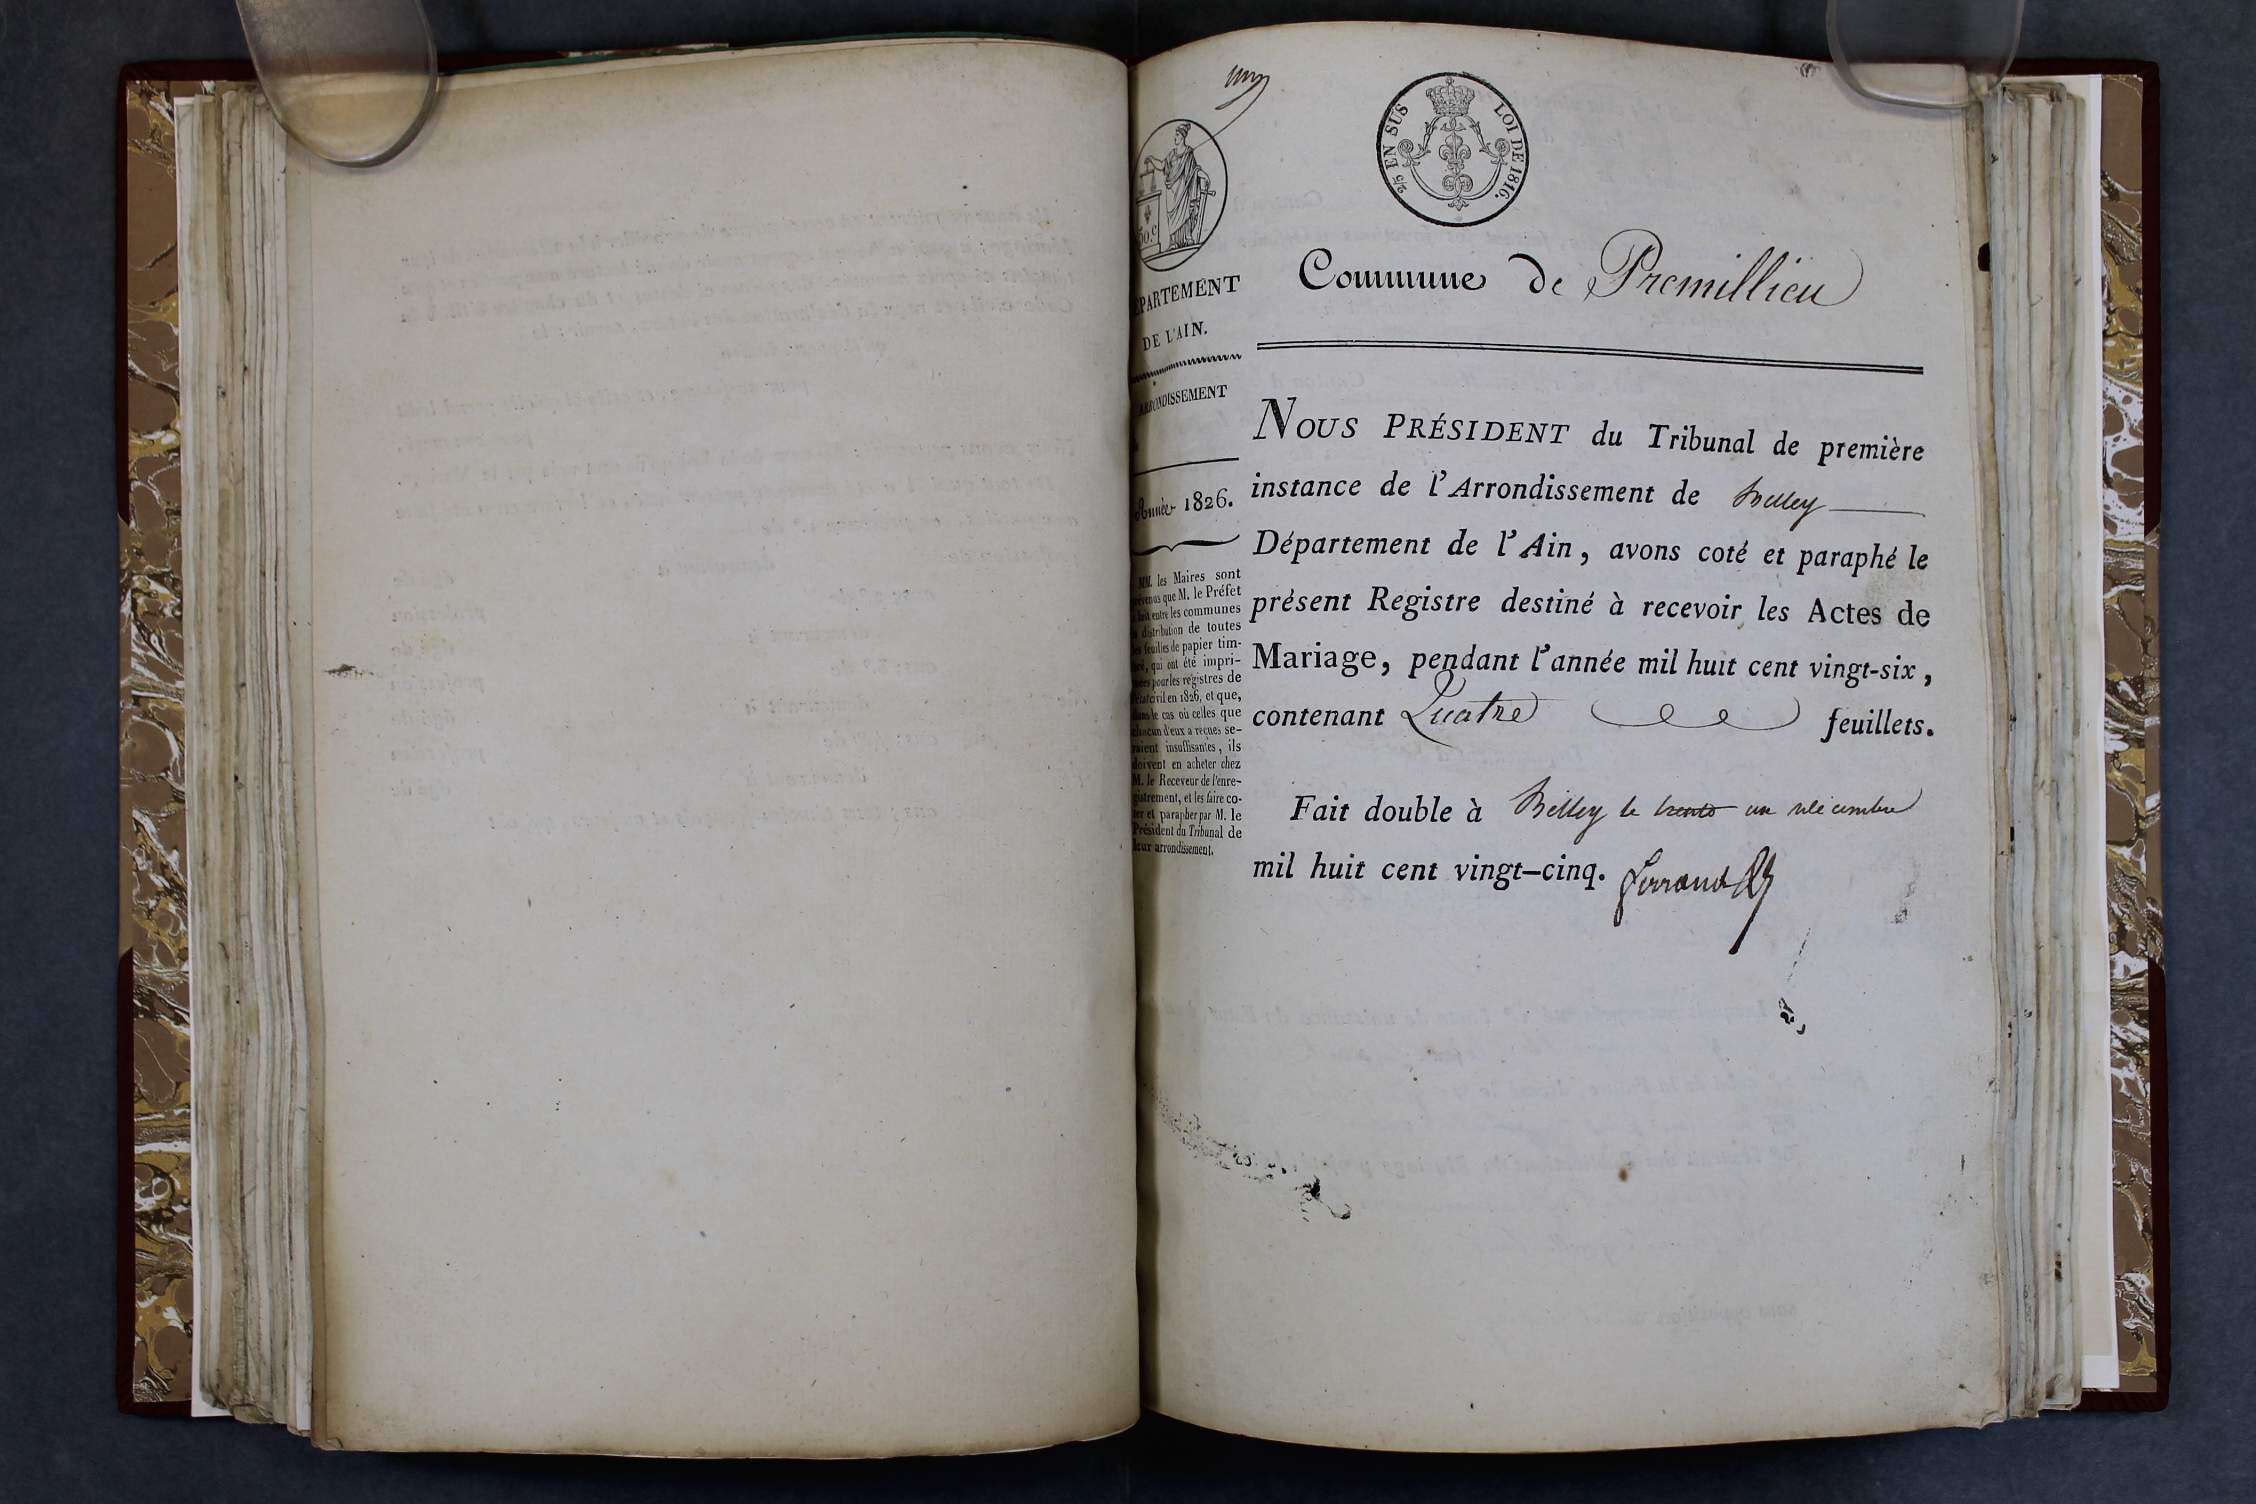 2/5 EN SUS
LOI DE 1816.
50.c
DÉPARTEMENT
DE L'AIN.
ARRONDISSEMENT
Année 1826.
MM. les Maires sont
prévenus que M. le Préfet
a fait entre les communes
la distribution de toutes
les feuilles de papier tim-
bré, qui ont été impri-
mées pour les registres de
l'état civil en 1826, et que,
dans le cas où celles que
chacun d'eux a reçues se-
raient insuffisantes, ils
doivent en acheter chez
M. le Receveur de l'enre-
gistrement, et les faire co-
ter et parapher par M. le
Président du Tribunal de
leur arrondissement.
Commune de Premillieu
NOUS PRÉSIDENT du Tribunal de première
instance de l'Arrondissement de Belley
Département de l'Ain, avons coté et paraphé le
présent Registre destiné à recevoir les Actes de
Mariage, pendant l'année mil huit cent vingt-six,
contenant Quatre feuillets.
Fait double à Belley le trente un décembre
mil huit cent vingt-cinq. Ferrand